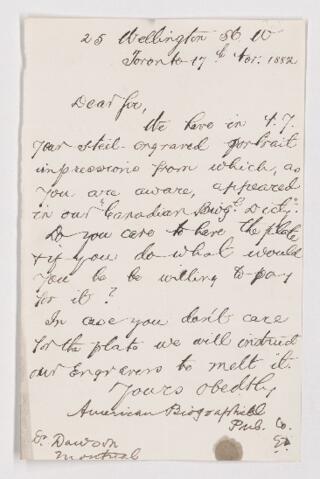 25 Wellington St W
Toronto 17th Nov. 1882
Dear Sir,
We have in N.Y.
your steel-engraved portrait
impressions from which, as
you are aware, appeared
in our "Canadian Biogl. Dicty."
Do you care to have the plate
& if you do what would
you be be willing to pay
for it?
In case you don't care
for the plate we will instruct
our Engravers to melt it.
Yours obedtly,
American Biographical
Pub. Co.
Dr Dawson
Montreal